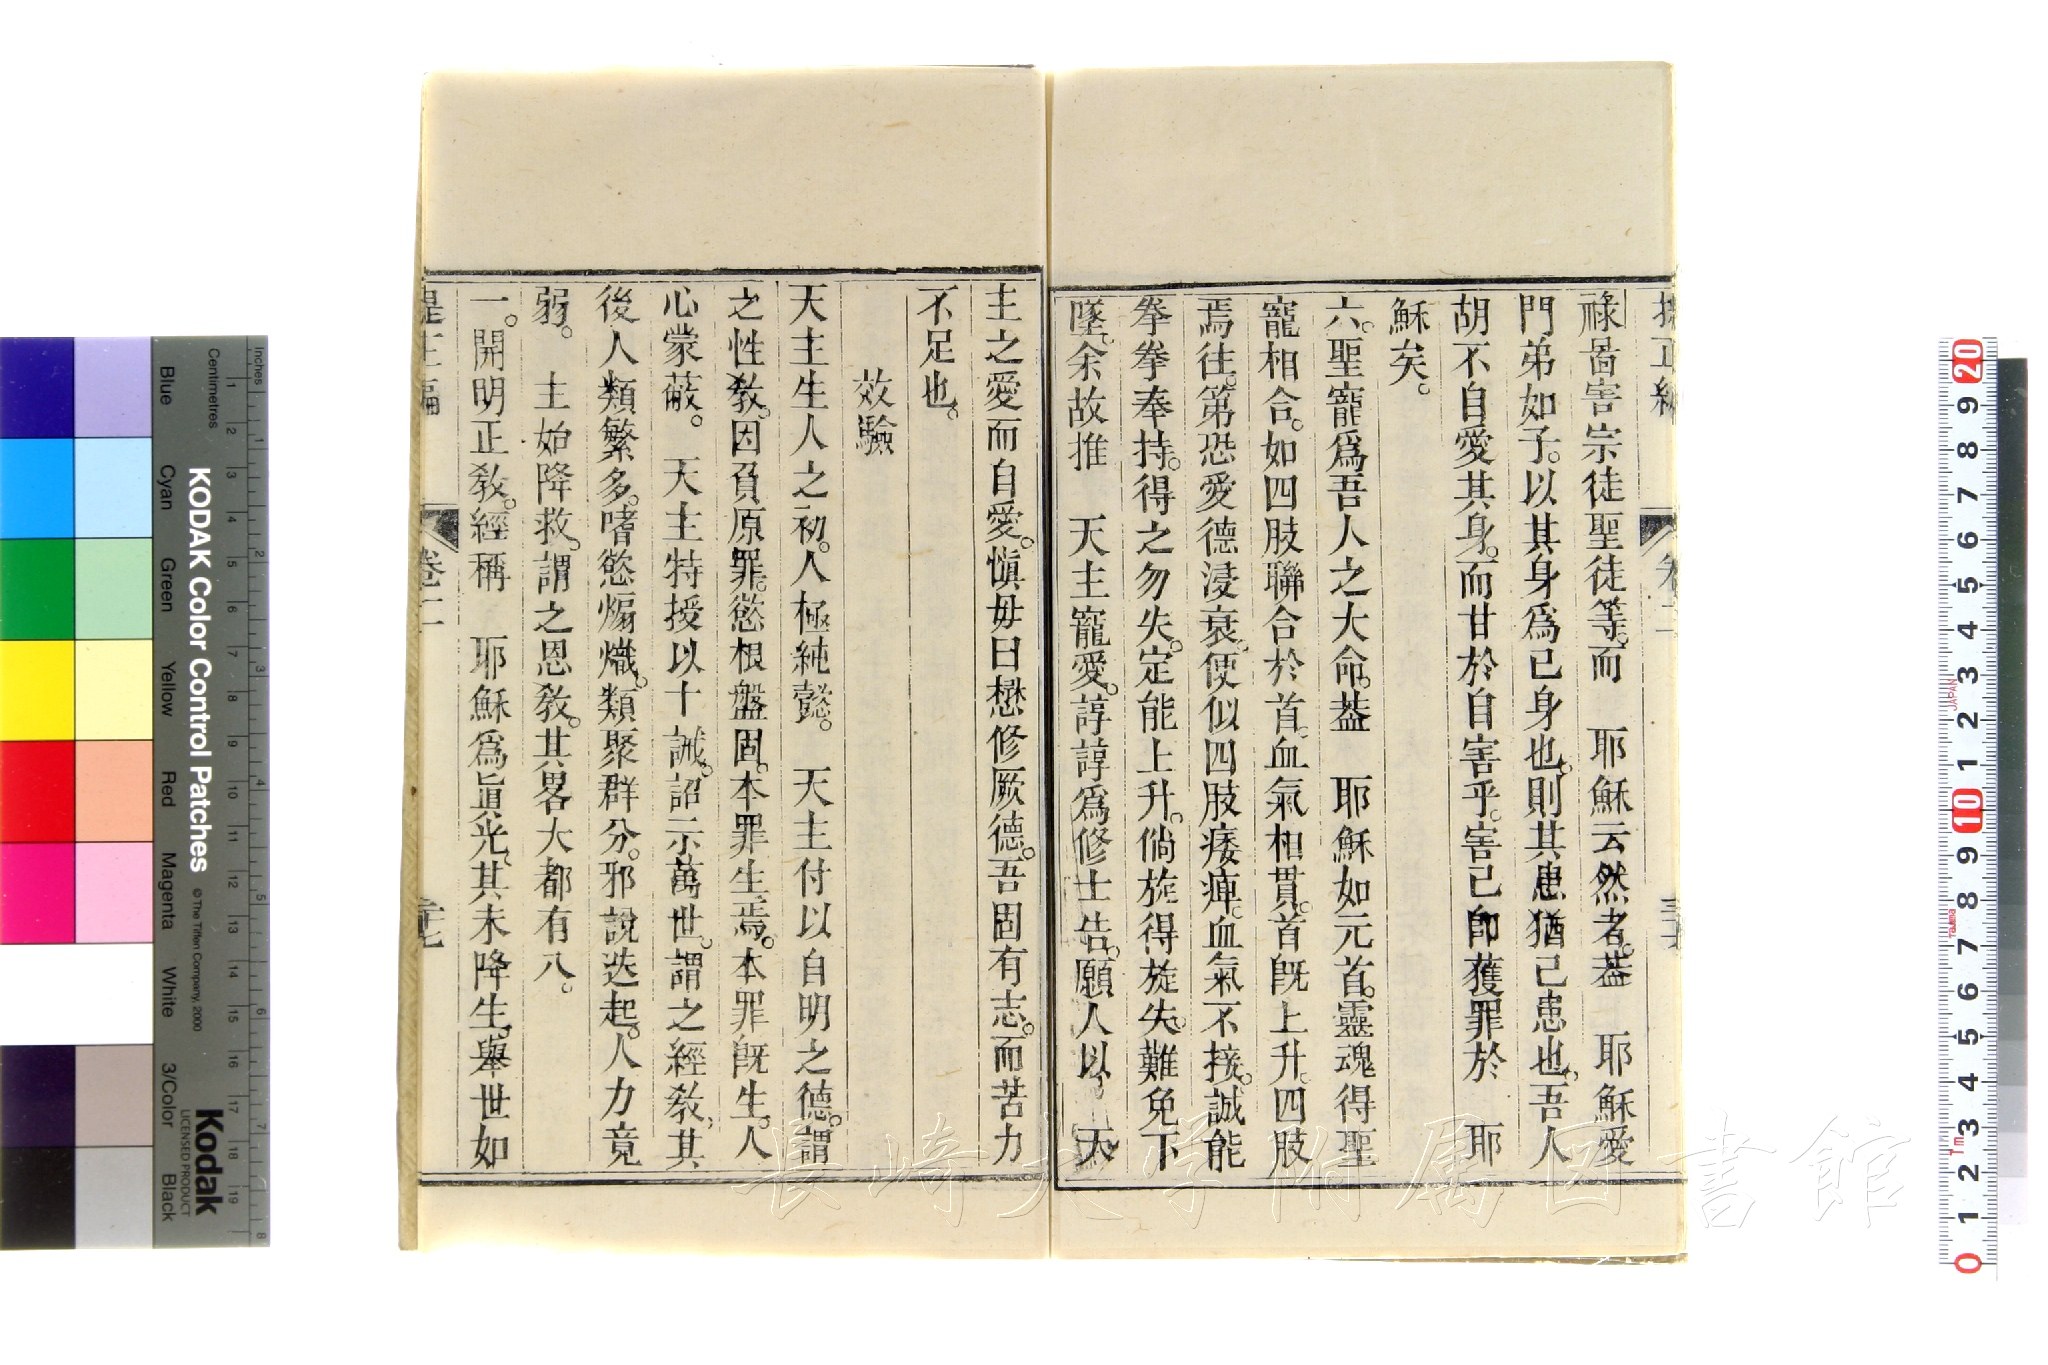 祿啚害宗徒聖徒等。而　耶穌云然者。葢　耶穌愛
門弟如子。以其身爲已身也。則其患猶己患也。吾人
胡不自愛其身。而甘於自害乎。害己卽獲罪於　耶
穌矣。
六。聖寵爲吾人之大命。葢　耶穌如元首。靈魂得聖
寵相合。如四肢聯合於首。血氣相貫。首旣上升。四肢
焉往。第恐愛德浸衰。便似四肢痿痺。血氣不接。誠能
拳拳奉持。得之勿失。定能上升。倘旋得旋失。難免下
墜。余故推　天主寵愛。諄諄爲修士告。願人以　天
主之愛而自愛。愼毋曰懋修厥德。吾固有志。而苦力
不足也。
效驗
天主生人之初。人極純懿。　天主付以自明之德。謂
之性敎。因負原罪。慾根盤固。本罪生焉。本罪旣生。人
心蒙蔽。　天主特授以十誡。詔示萬世。謂之經敎、其
後人類繁多。嗜慾煽熾。類聚群分。邪說迭起。人力竟
弱。　主始降救。謂之恩敎。其畧大都有八。
一。開明正敎。經稱　耶穌爲眞光。其未降生。舉世如
提正編
卷二
KODAK Color Control Patches
© The Tiffen Company, 2000
Kodak
LICENSED PRODUCT
Inches
Centimetres
Blue
Cyan
Green
Yellow
Red
Magenta
White
3/Color
Black
長崎大学附属図書館
JAPAN